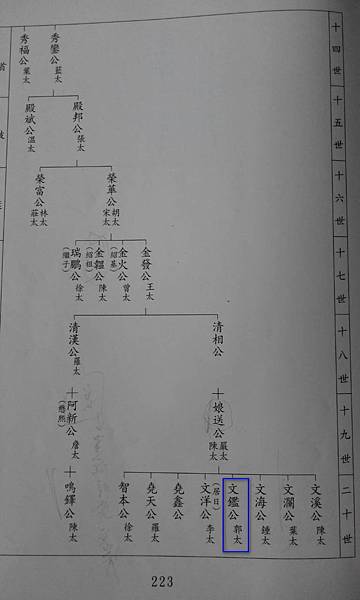 十四世
秀鑾公 藍太
秀福公 葉太
十五世
殿邦公 張太
殿斌公 溫太
十六世
榮華公 胡太 宋太
榮富公 林太 莊太
十七世
金發公 王太
金火公 曾太
(紹基)
金鑼公 陳太
(紹祖)
瑞鵬公 徐太
(繼子)
十八世
清相公
清漢公 羅太
十九世
娘送公 嚴太 陳太
阿新公 詹太
(懋然)
二十世
文溪公 陳太
文瀾公 葉太
文海公 鍾太
文鑑公 郭太
文洋公 李太
(居日)
堯鑫公
堯天公 羅太
智本公 徐太
鳴鐸公 陳太
223